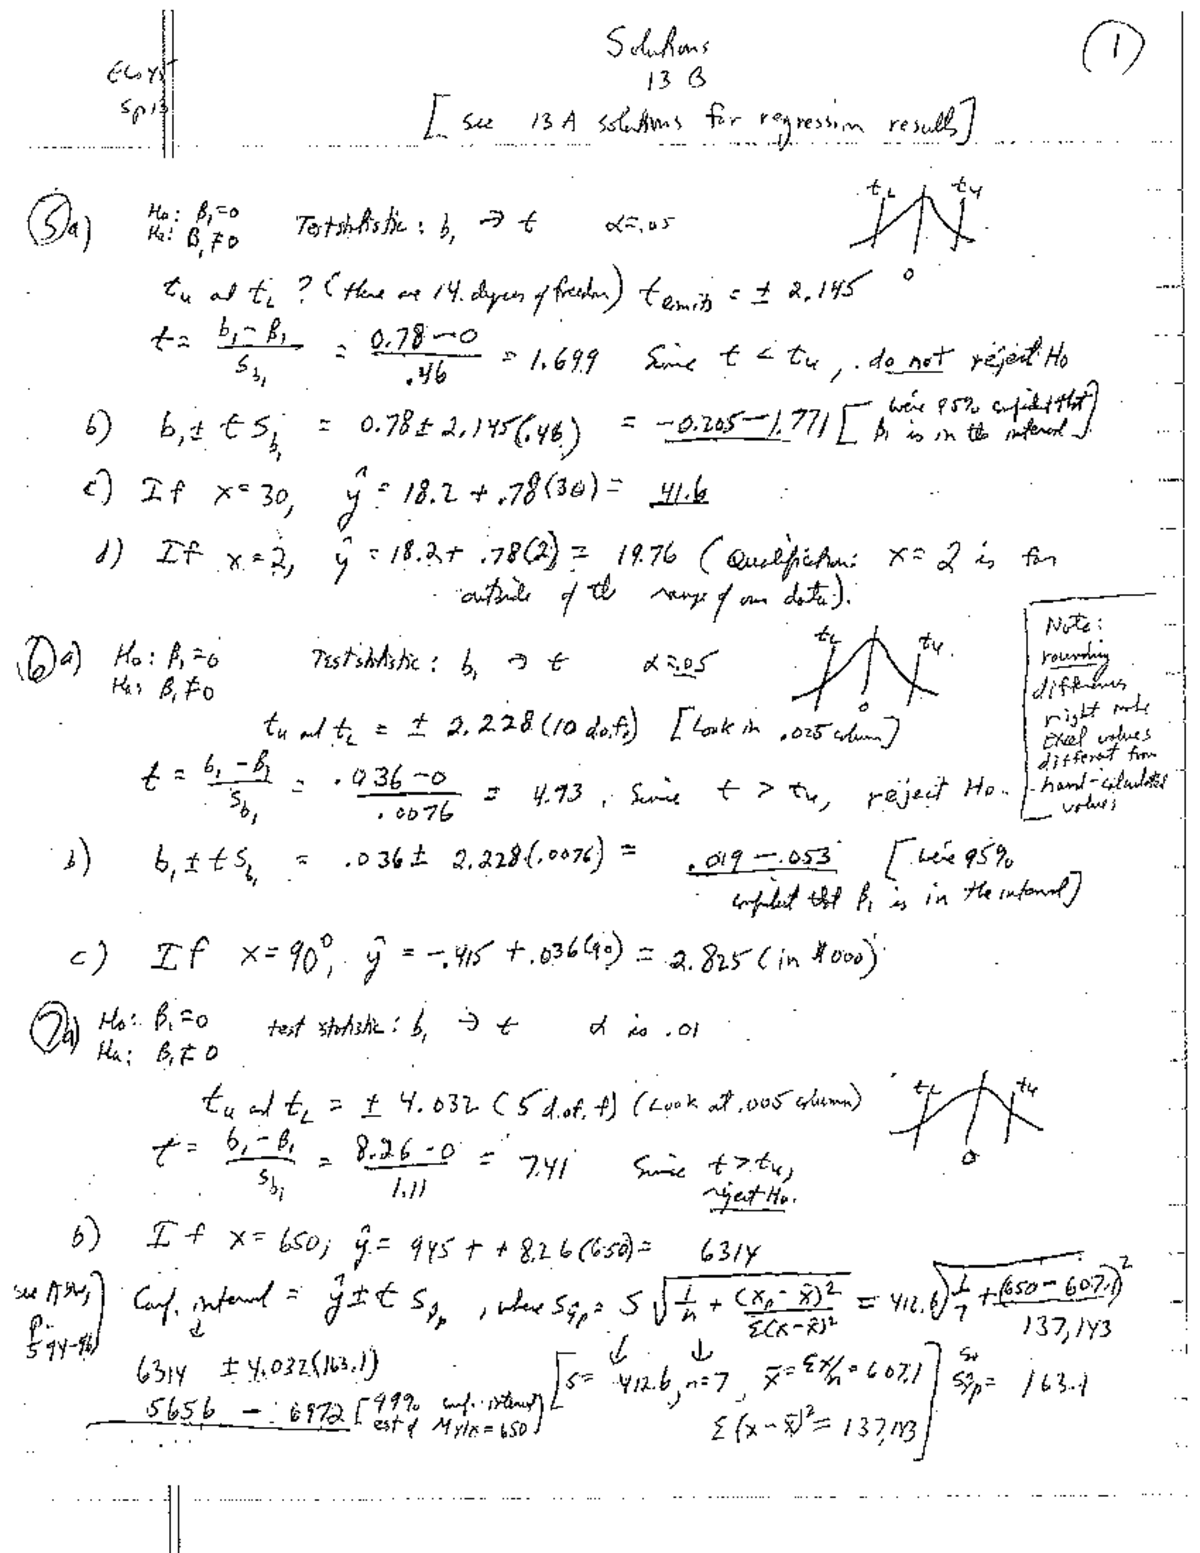 Solutions
13 B
1
Sp 13
[see 13A solutions for regression results]
5a) H₀: β₁=0 Test statistic: b₁ → t α=.05
Hₐ: β₁≠0
t_L t_u
0
t_u and t_L? (there are 14 degrees of freedom) t limits = ± 2.145
t = (b₁ - β₁)/S_b₁ = (0.78 - 0)/.46 = 1.699 Since t < t_u, do not reject H₀
b) b₁ ± t S_b₁ = 0.78 ± 2.145(.46) = -0.205 — 1.771 [we're 95% confident that β₁ is in the interval]
c) If x = 30, ŷ = 18.2 + .78(30) = 41.6
d) If x = 2, ŷ = 18.2 + .78(2) = 19.76 (Qualification: x = 2 is far
outside of the range of our data).
6a) H₀: β₁=0 Test statistic: b₁ → t α=.05
Hₐ: β₁≠0
t_L t_u
0
Note:
rounding
differences
might make
Excel values
different from
hand-calculated
values
t_u and t_L = ± 2.228 (10 d.o.f.) [Look in .025 column]
t = (b₁ - β₁)/S_b₁ = (.036 - 0)/.0076 = 4.73, Since t > t_u, reject H₀.
b) b₁ ± t S_b₁ = .036 ± 2.228(.0076) = .019 — .053 [we're 95%
confident that β₁ is in the interval]
c) If x = 90°, ŷ = -.415 + .036(90) = 2.825 (in $000)
7a) H₀: β₁=0 test statistic: b₁ → t α is .01
Hₐ: β₁≠0
t_L t_u
0
t_u and t_L = ± 4.032 (5 d.o.f) (Look at .005 column)
t = (b₁ - β₁)/S_b₁ = (8.26 - 0)/1.11 = 7.41 Since t > t_u,
reject H₀.
b) If x = 650, ŷ = 945 + + 8.26(650) = 6314
p. 594-96
Conf. interval = ŷ ± t S_ŷp, where S_ŷp = S √(1/n + (x_p - x̄)²/Σ(x-x̄)²) = 412.6 √(1/7 + (650 - 607.1)²/137,143)
6314 ± 4.032(163.1) [S = 412.6, n=7, x̄ = Σx/n = 607.1 Σ(x-x̄)² = 137,143] so S_ŷp = 163.1
5656 — 6972 [99% conf. interval est of μ y|x=650]